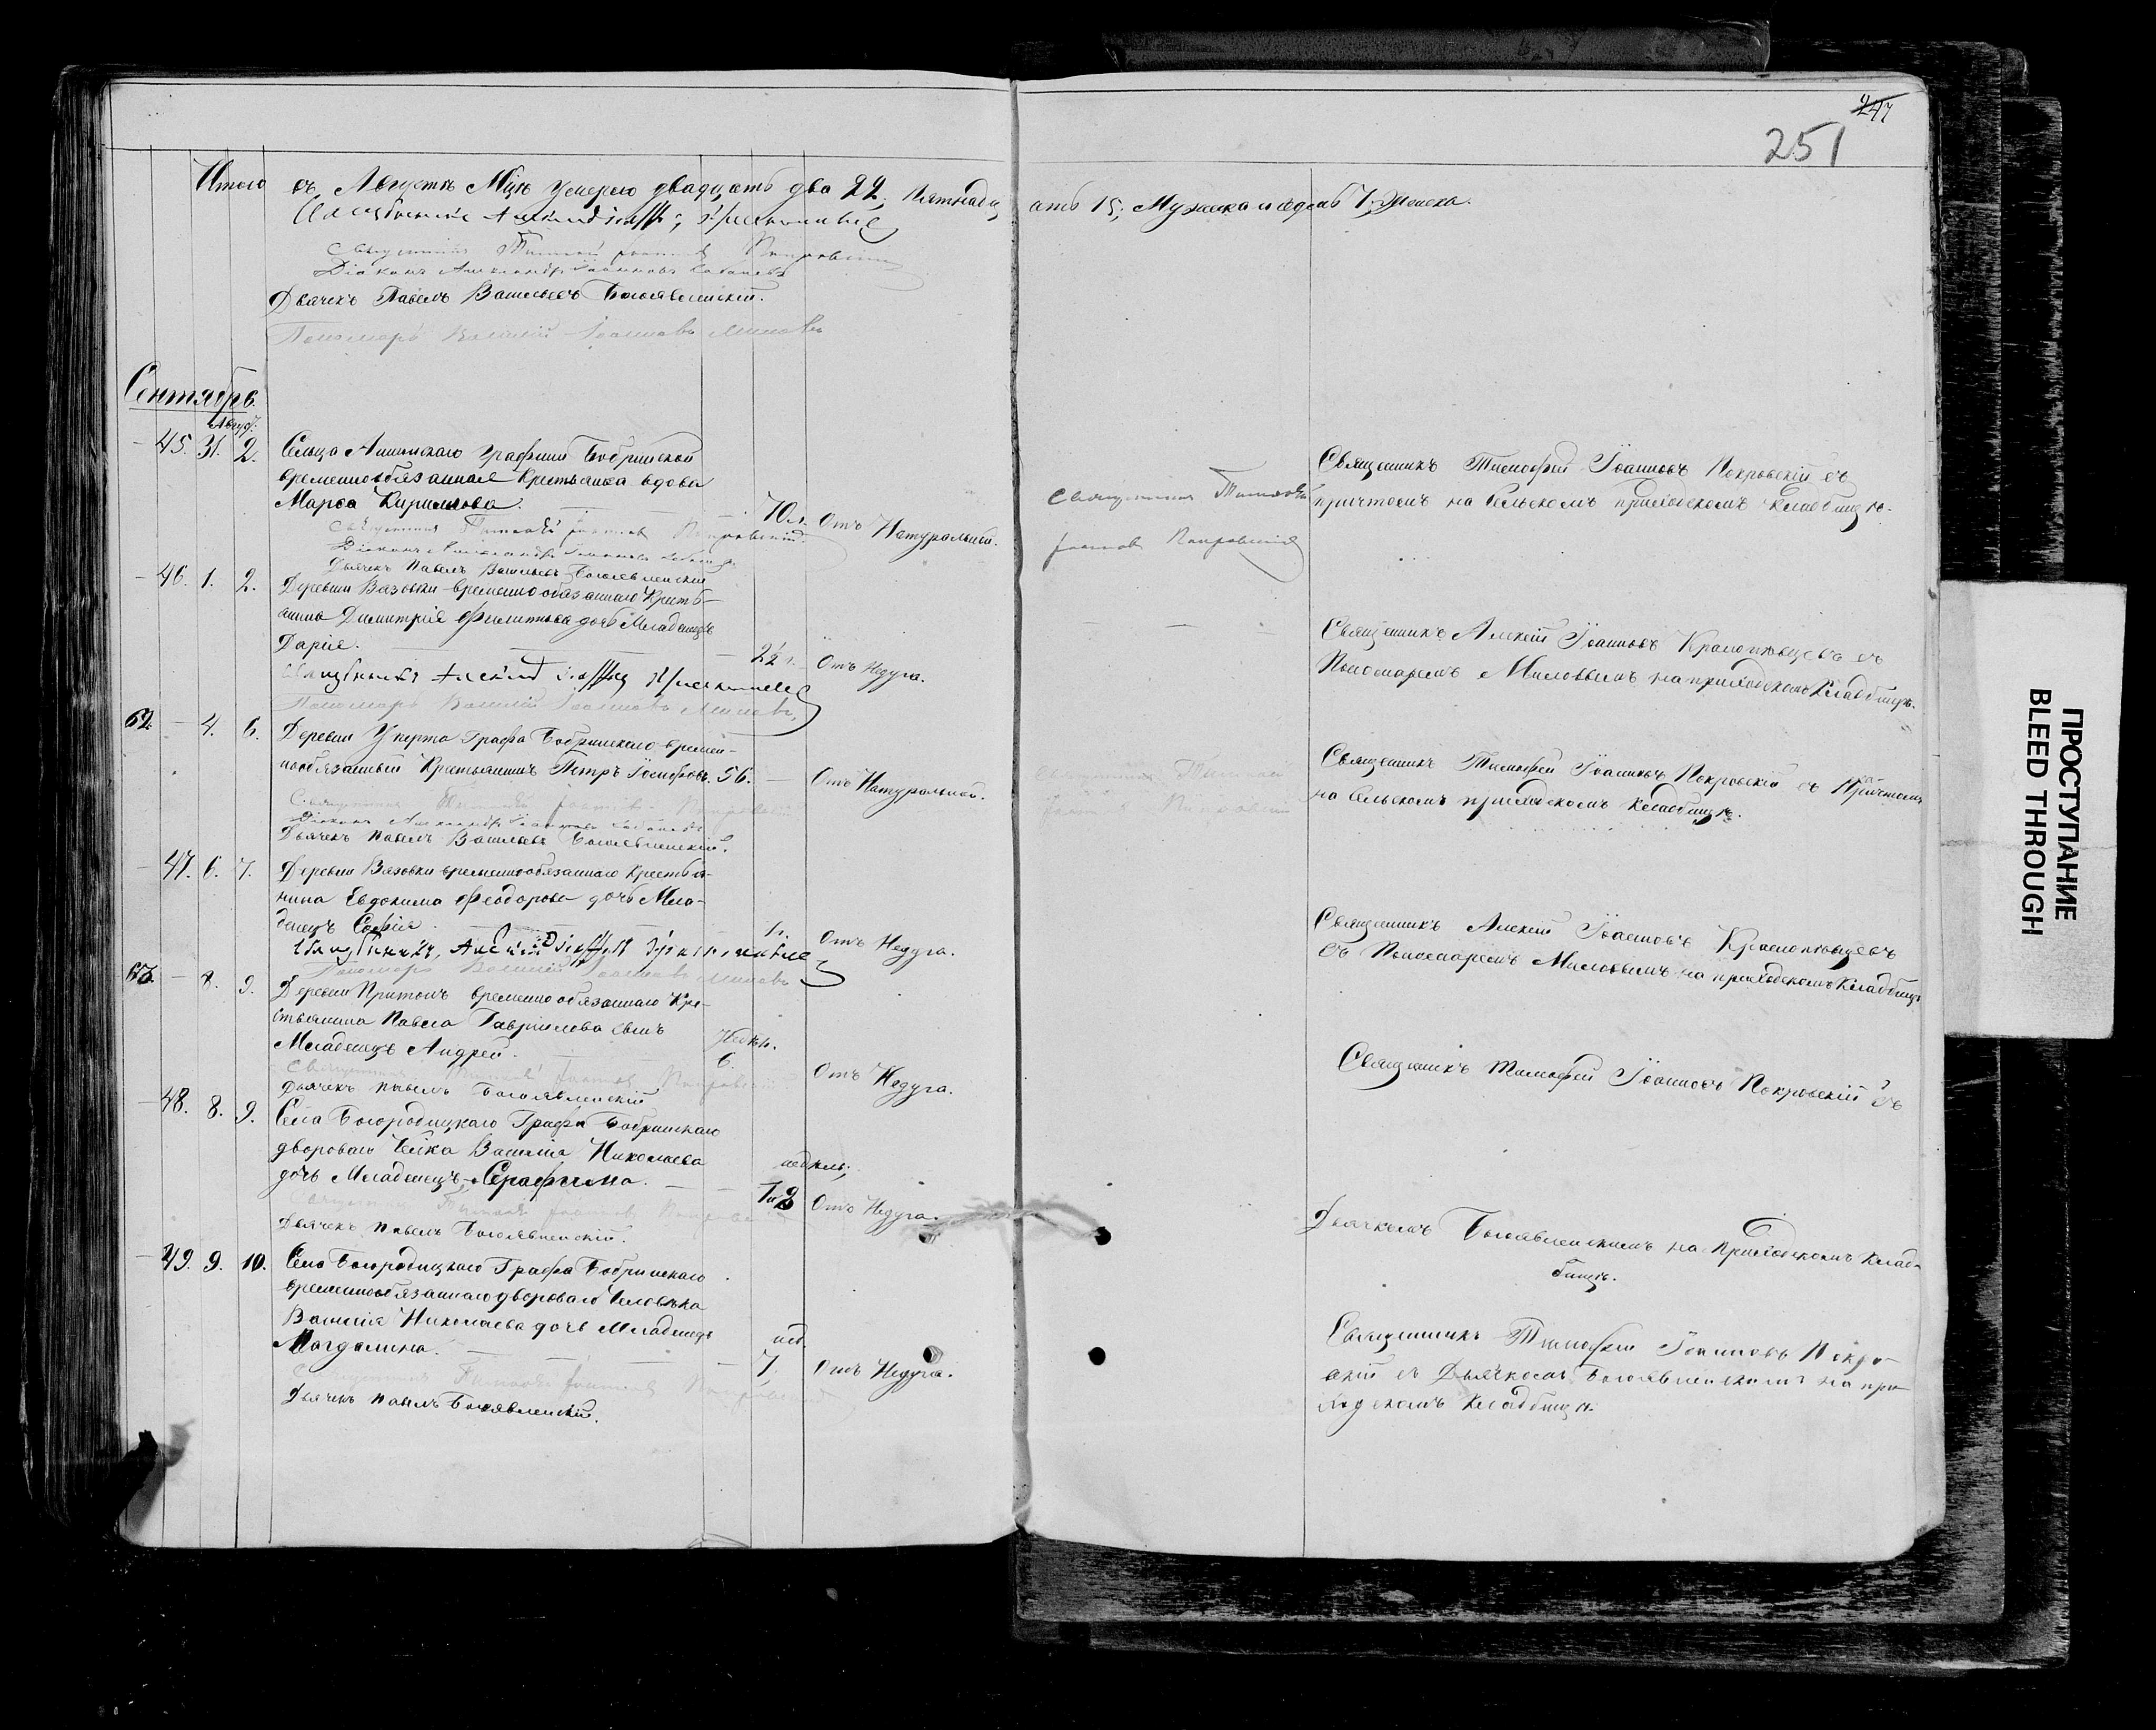 247
251
Итого въ Августѣ Мцѣ умерло двадцать два 22; пятнадц
ать 15; Мужеска и седмь 7; Женска.
Священникъ Алексій
Священникъ Тимофей Іоанновъ Покровскій
Діаконъ Александръ Іоанновъ
Дьячекъ Павелъ Васильевъ Богоявленскій.
Пономарь Василій Іоанновъ Миловъ
Сентябрь.
Авгус.
45. 31. 2. Сельца графини Бобринской
временнообязанная крестьянка вдова
Марѳа Кирилова. 70 л. Отъ Натуральной.
Священникъ Тимофей Іоанновъ Покровскій
Діаконъ Александръ Іоанновъ
Дьячекъ Павелъ Васильевъ Богоявленскій
Священникъ Тимофей
Іоанновъ Покровскій
Священникъ Тимофей Іоанновъ Покровскій съ
причтомъ на Сельскомъ приходскомъ кладбищѣ.
46. 1. 2. Деревни Вязовки временнообязаннаго Кресть-
янина Димитрія Филиппова дочь Младенецъ
Дарія. 2½ г. Отъ Недуга.
Священникъ Алексій
Пономарь Василій Іоанновъ Миловъ
Священникъ Алексій Іоанновъ Краснопѣвцевъ съ
Пономаремъ Миловымъ на приходскомъ Кладбищѣ.
62. 4. 6. Деревни Упертa Графа Бобринскаго времен-
нообязанный Крестьянинъ Петръ Іосифовъ. 56. Отъ Натуральной.
Священникъ Тимофей Іоанновъ Покровскій
Діаконъ Александръ Іоанновъ
Дьячекъ Павелъ Васильевъ Богоявленскій.
Священникъ Тимофей Іоанновъ Покровскій съ Причтомъ
на Сельскомъ приходскомъ Кладбищѣ.
47. 6. 7. Деревни Вязовки временнообязаннаго Крестья-
нина Евдокима Феодорова дочь Мла-
денецъ Софія. Отъ Недуга.
Священникъ Алексій
Пономарь Василій Іоанновъ Миловъ
Священникъ Алексій Іоанновъ Краснопѣвцевъ
съ Пономаремъ Миловымъ на приходскомъ Кладбищѣ
63. 8. 9. Деревни Притонъ временнообязаннаго Кре-
стьянина Павла Гавріилова сынъ
Младенецъ Андрей. Недѣль. 6. Отъ Недуга.
Священникъ Тимофей Іоанновъ Покровскій
Дьячекъ Павелъ Богоявленскій
Священникъ Тимофей Іоанновъ Покровскій съ
48. 8. 9. Села Богородицкаго Графа Бобринскаго
двороваго Чел-ка Василія Николаева
дочь Младенецъ, Серафима. недѣль; Отъ Недуга.
Священникъ Тимофей Іоанновъ Покровскій
Дьячекъ Павелъ Богоявленскій.
Дьячкомъ Богоявленскимъ на Приходскомъ Клад-
бищѣ.
49. 9. 10. Села Богородицкаго Графа Бобринскаго
временнообязаннаго двороваго Человѣка
Василія Николаева дочь Младенецъ
Магдалина. нед. 7. Отъ Недуга.
Священникъ Тимофей Іоанновъ Покровскій
Дьячекъ Павелъ Богоявленскій.
Священникъ Тимофей Іоанновъ Покро-
вскій съ Дьячкомъ Богоявленскимъ на при-
ходскомъ Кладбищѣ.
ПРОСТУПАНИЕ
BLEED THROUGH